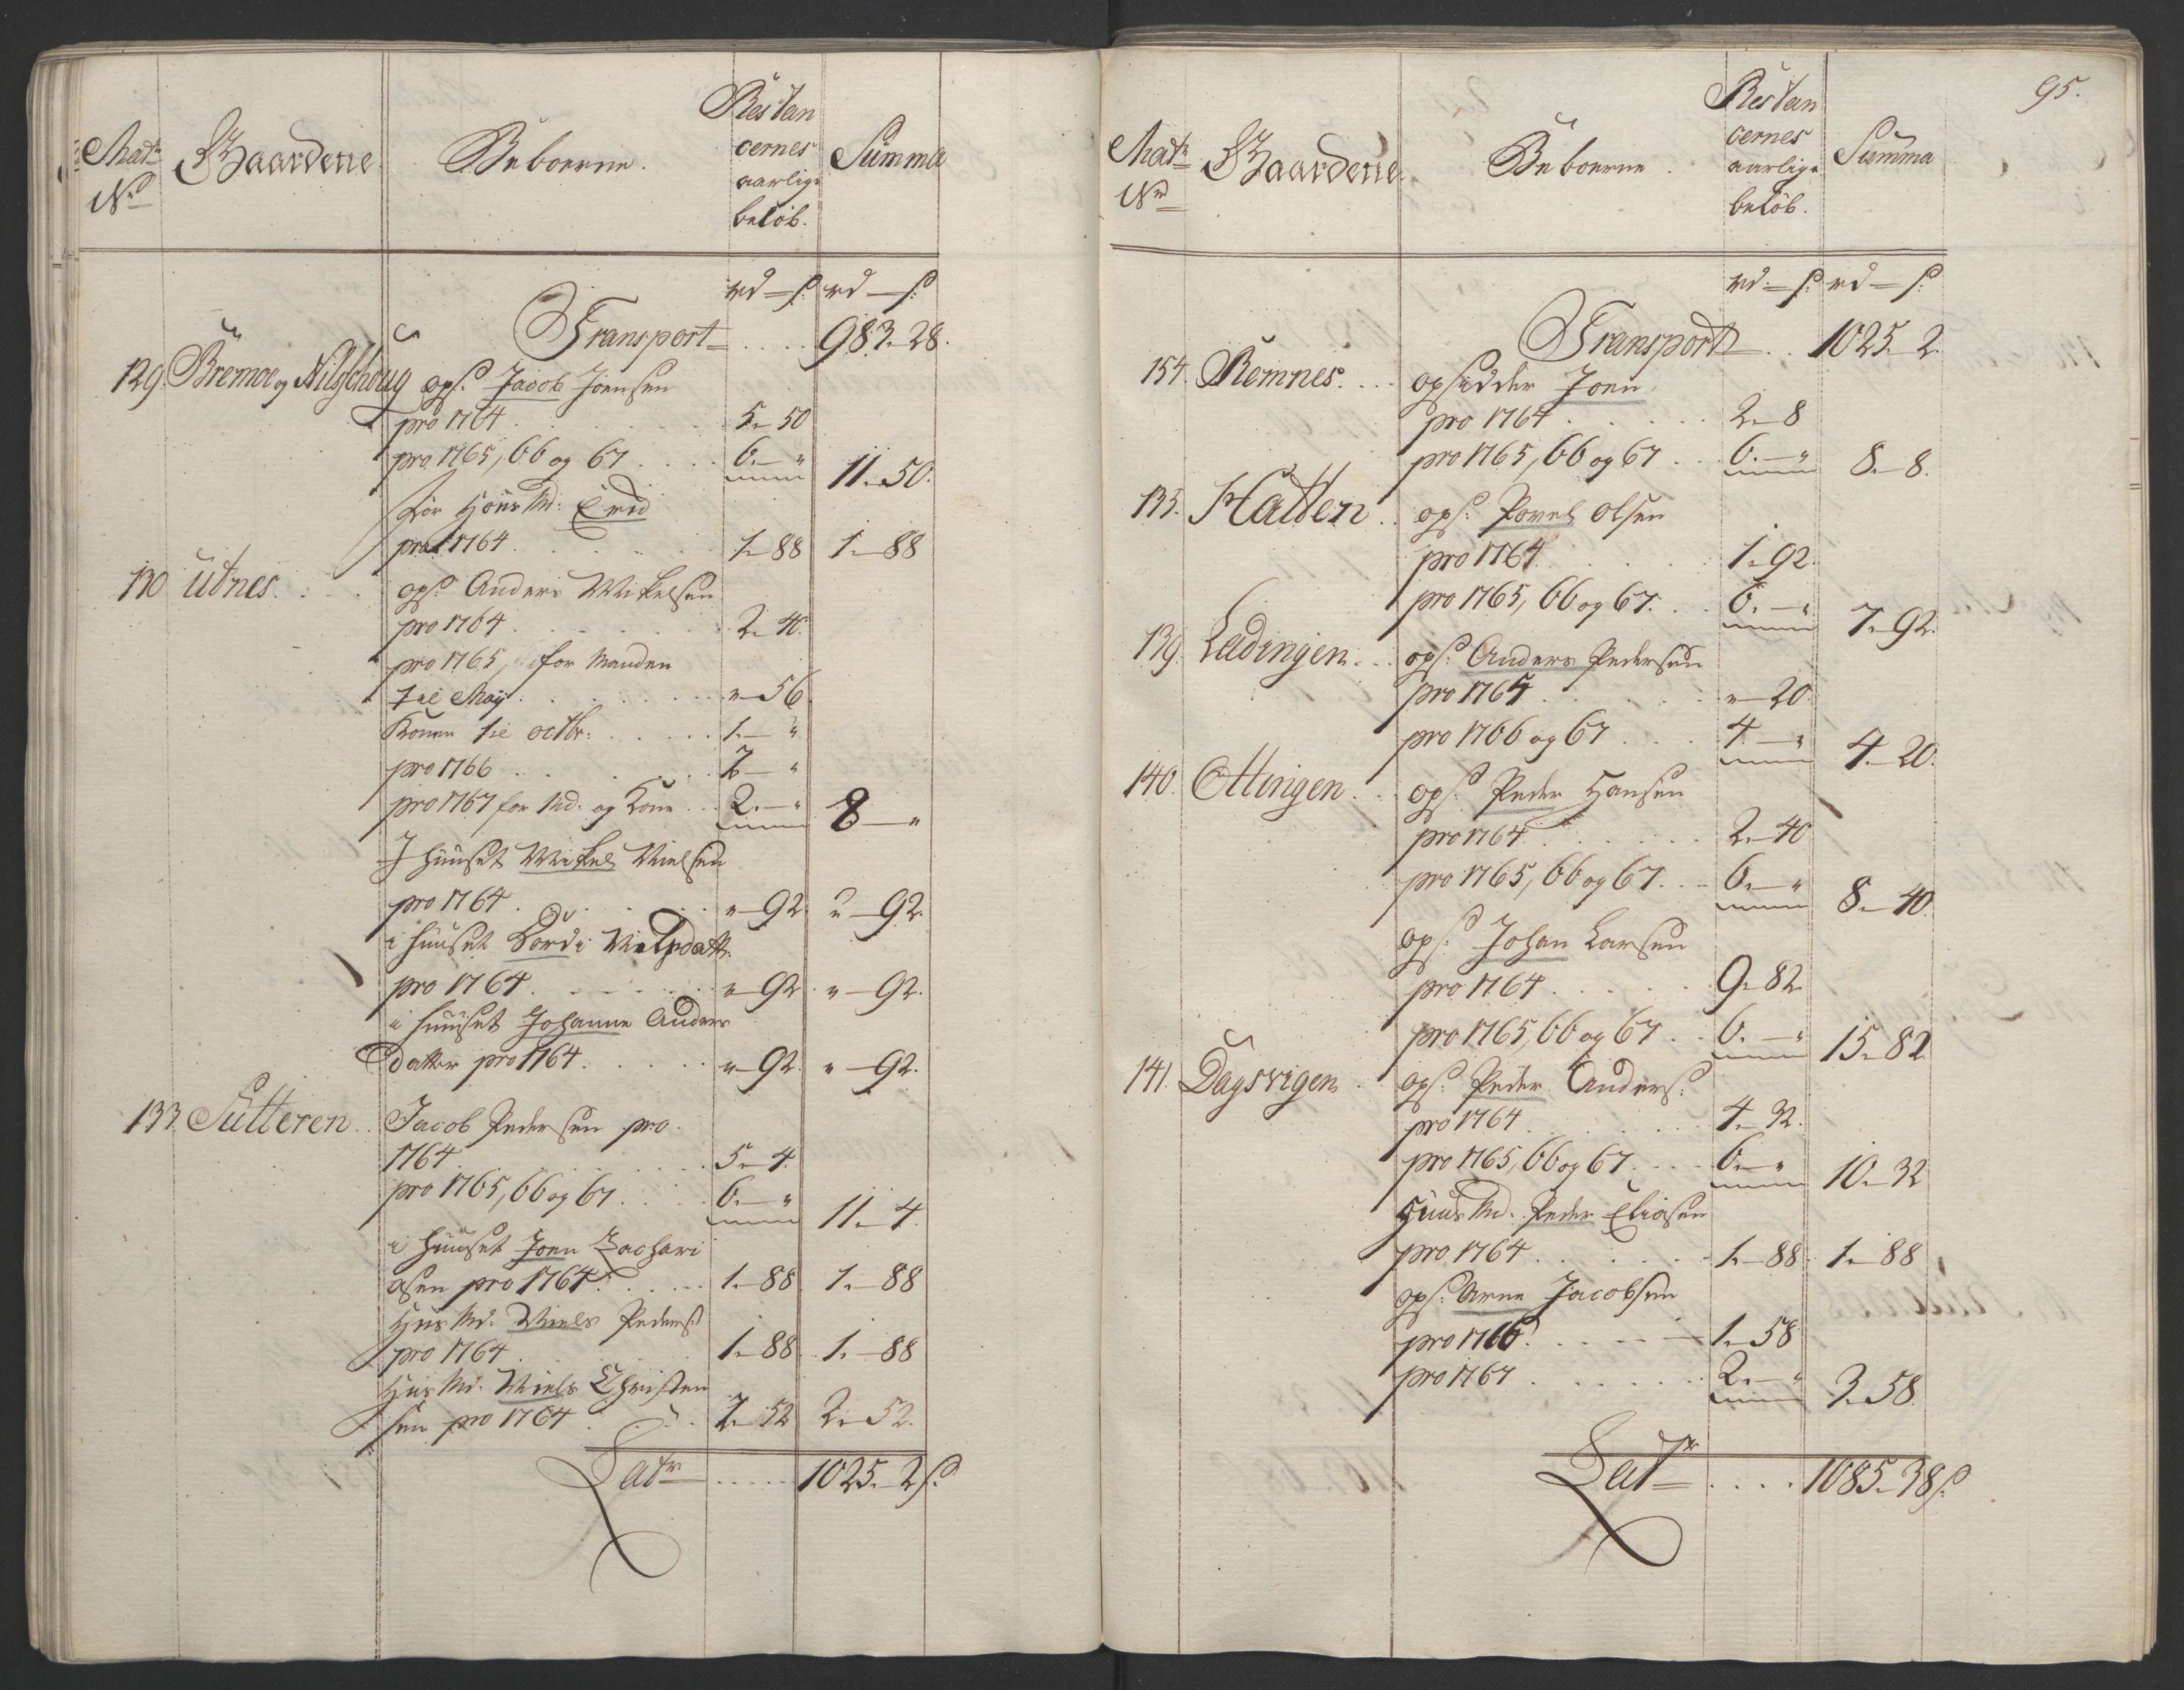 Matr Gaardene Beboerne. Restan Summa
No cernes
aarlige
beløb.
rd – s: rd – s:
Transport .... 983 - 28.
129. Bremoe og Nilschoug ops: Jacob Joensen
pro 1764 . . . 5 - 50
pro 1765, 66 og 67 . . . 6. - " 11 - 50.
for Huus Md:
pro 1764 . . . 1 - 88 1 - 88
130 Udnes . . . ops: Anders Mikelsen
pro 1764 . . . 2 - 40.
pro 1765, for Manden
til Maij . . . " - 56
Konen til octbr: . . . 1. - "
pro 1766 . . . 2 - "
pro 1767 for Md: og Kone . . 2. - " 8 - "
I huuset Mikel Nielsen
pro 1764 . . . " - 92 " - 92.
i huuset Nielsdatt:
pro 1764 . . . " - 92 " - 92.
i huuset Johanne Anders
datter pro 1764 . . . " - 92. " - 92.
133. Sutteren . . Jacob Pedersen pro
1764 . . . 5 - 4.
pro 1765, 66 og 67 . . . 6. - " 11 - 4.
i huuset Joen Zachari
asen pro 1764 . . . 1 - 88 1. - 88
Huus Md: Niels Peders:
pro 1764 . . . 1 - 88 1. - 88
Huus Md: Niels Christen
sen pro 1764 . . . 2 - 52 2 - 52.
Latr ..... 1025 - 2 s:
95.
Matr Gaardene. Beboerne. Restan Summa
No cernes
aarlige
beløb.
rd – s: rd – s:
Transport . . 1025 - 2.
154. Remnes . . . opsidder Joen
pro 1764 . . . 2 - 8
pro 1765, 66 og 67 . . 6. - " 8 - 8.
135. Halten . . ops: Povel Olsen
pro 1764 . . . 1 - 92.
pro 1765, 66 og 67. . . 6. - " 7 - 92.
139. Ledingen . . . ops: Anders Pedersen
pro 1765 . . . " - 20.
pro 1766 og 67 . . . 4 - " 4 - 20.
140. Ottingen . . . ops: Peder Hansen
pro 1764 . . . 2 - 40
pro 1765, 66 og 67. . . 6. - " 8 - 40.
ops: Johan Larsen
pro 1764 . . . 9 - 82.
pro 1765, 66 og 67 . . 6. - " 15 - 82
141. Dagsvigen . ops: Peder Anders:
pro 1764 . . . 4 - 32.
pro 1765, 66 og 67. . . 6. - " 10. - 32
Huus Md: Peder Eliasen
pro 1764 . . . 1 - 88. 1 - 88
ops: Arne Jacobsen
pro 1766 . . . 1 - 58
pro 1767 . . . 2. - " 3. 58.
Latr .... 1085 - 38 s: